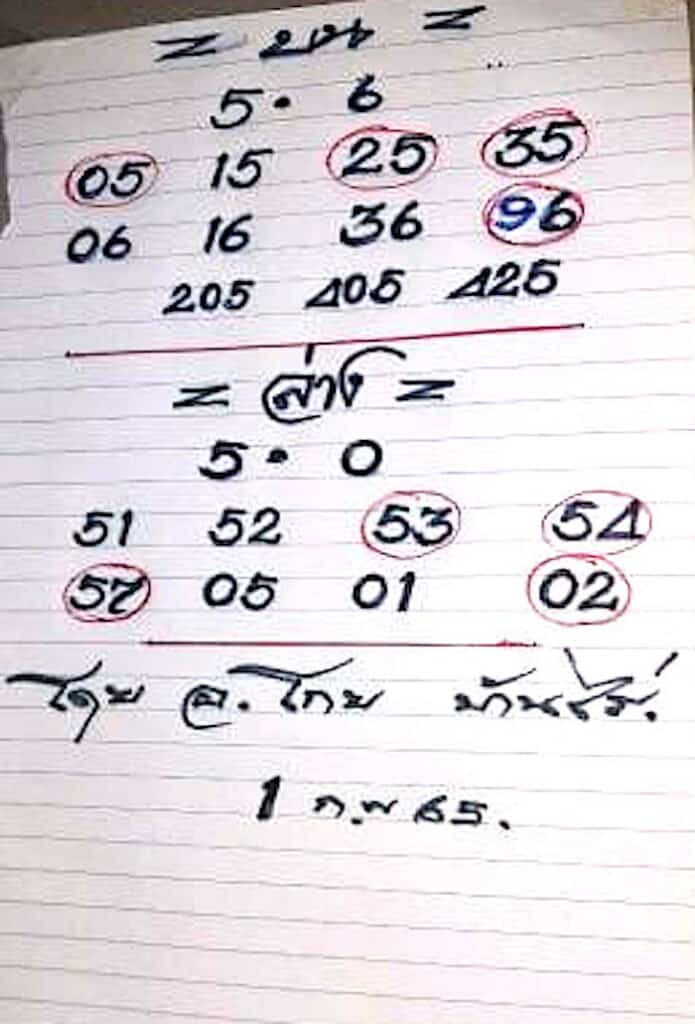 = บน =
5 • 6
05 15 25 35
06 16 36 96
205 405 425
= ล่าง =
5 • 0
51 52 53 54
57 05 01 02
โดย อ. โกย บ้านไร่.
1 ก.พ 65.